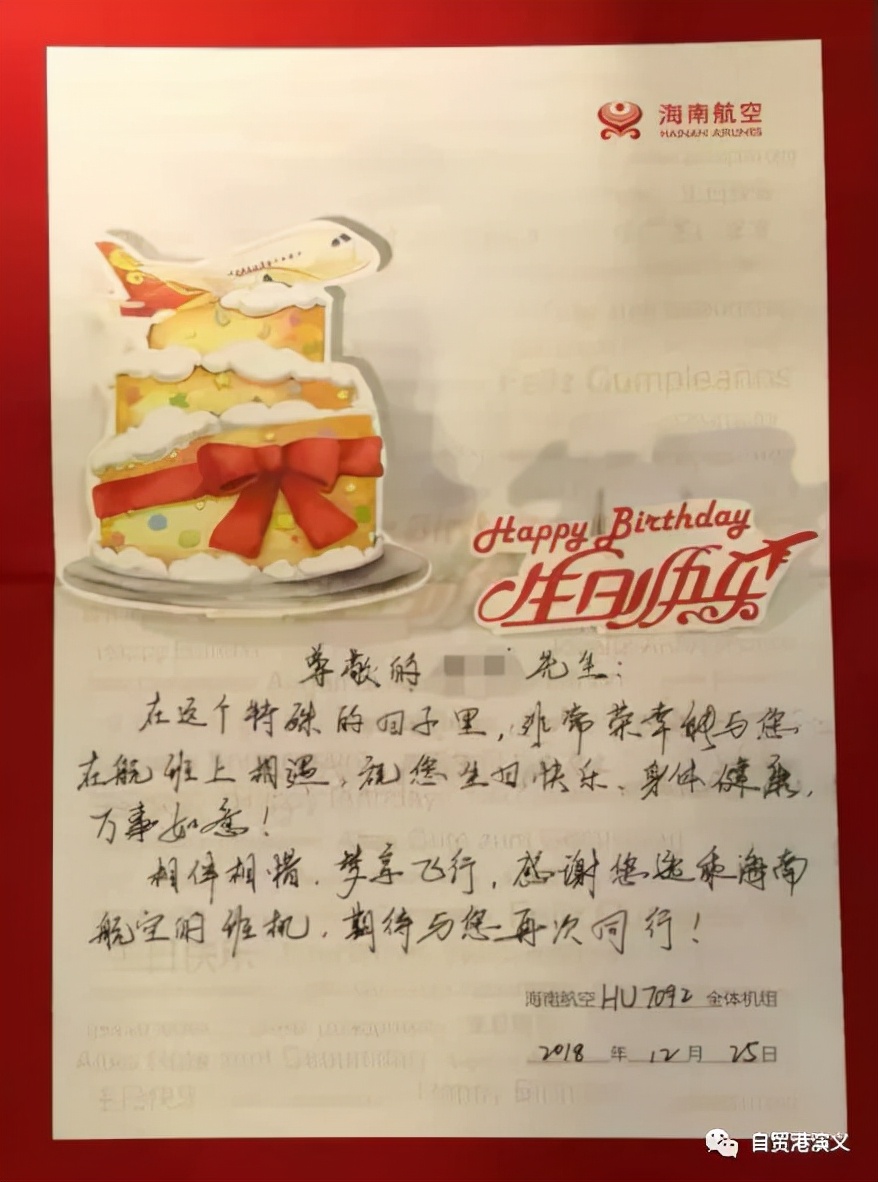 海南航空
HAINAN AIRLINES
Happy Birthday
生日快乐
尊敬的 先生：
在这个特殊的日子里，非常荣幸能与您
在航班上相遇，祝您生日快乐、身体健康，
万事如意！
相伴相惜，梦享飞行，感谢您选乘海南
航空的班机，期待与您再次同行！
海南航空 HU7092 全体机组
2018 年 12 月 25 日
自贸港演义